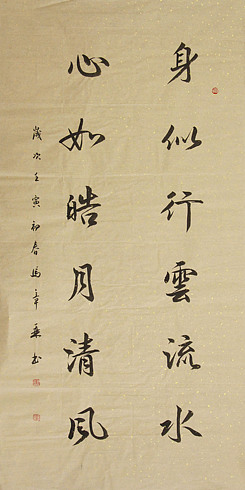 身似行雲流水
心如皓月清風
歲次壬寅初春馬章乘书